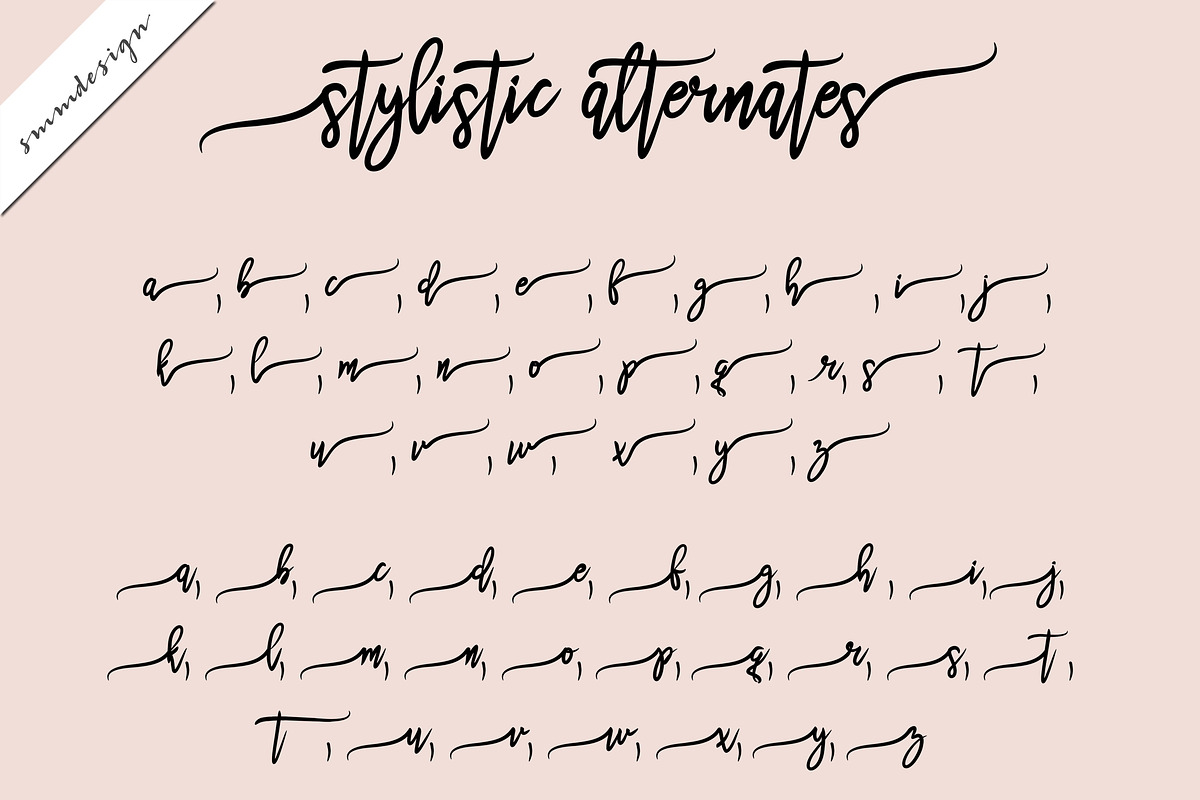 smmdesign
stylistic alternates
a, b, c, d, e, f, g, h, i, j,
k, l, m, n, o, p, q, r, s, t,
u, v, w, x, y, z
a, b, c, d, e, f, g, h, i, j,
k, l, m, n, o, p, q, r, s, t,
t, u, v, w, x, y, z